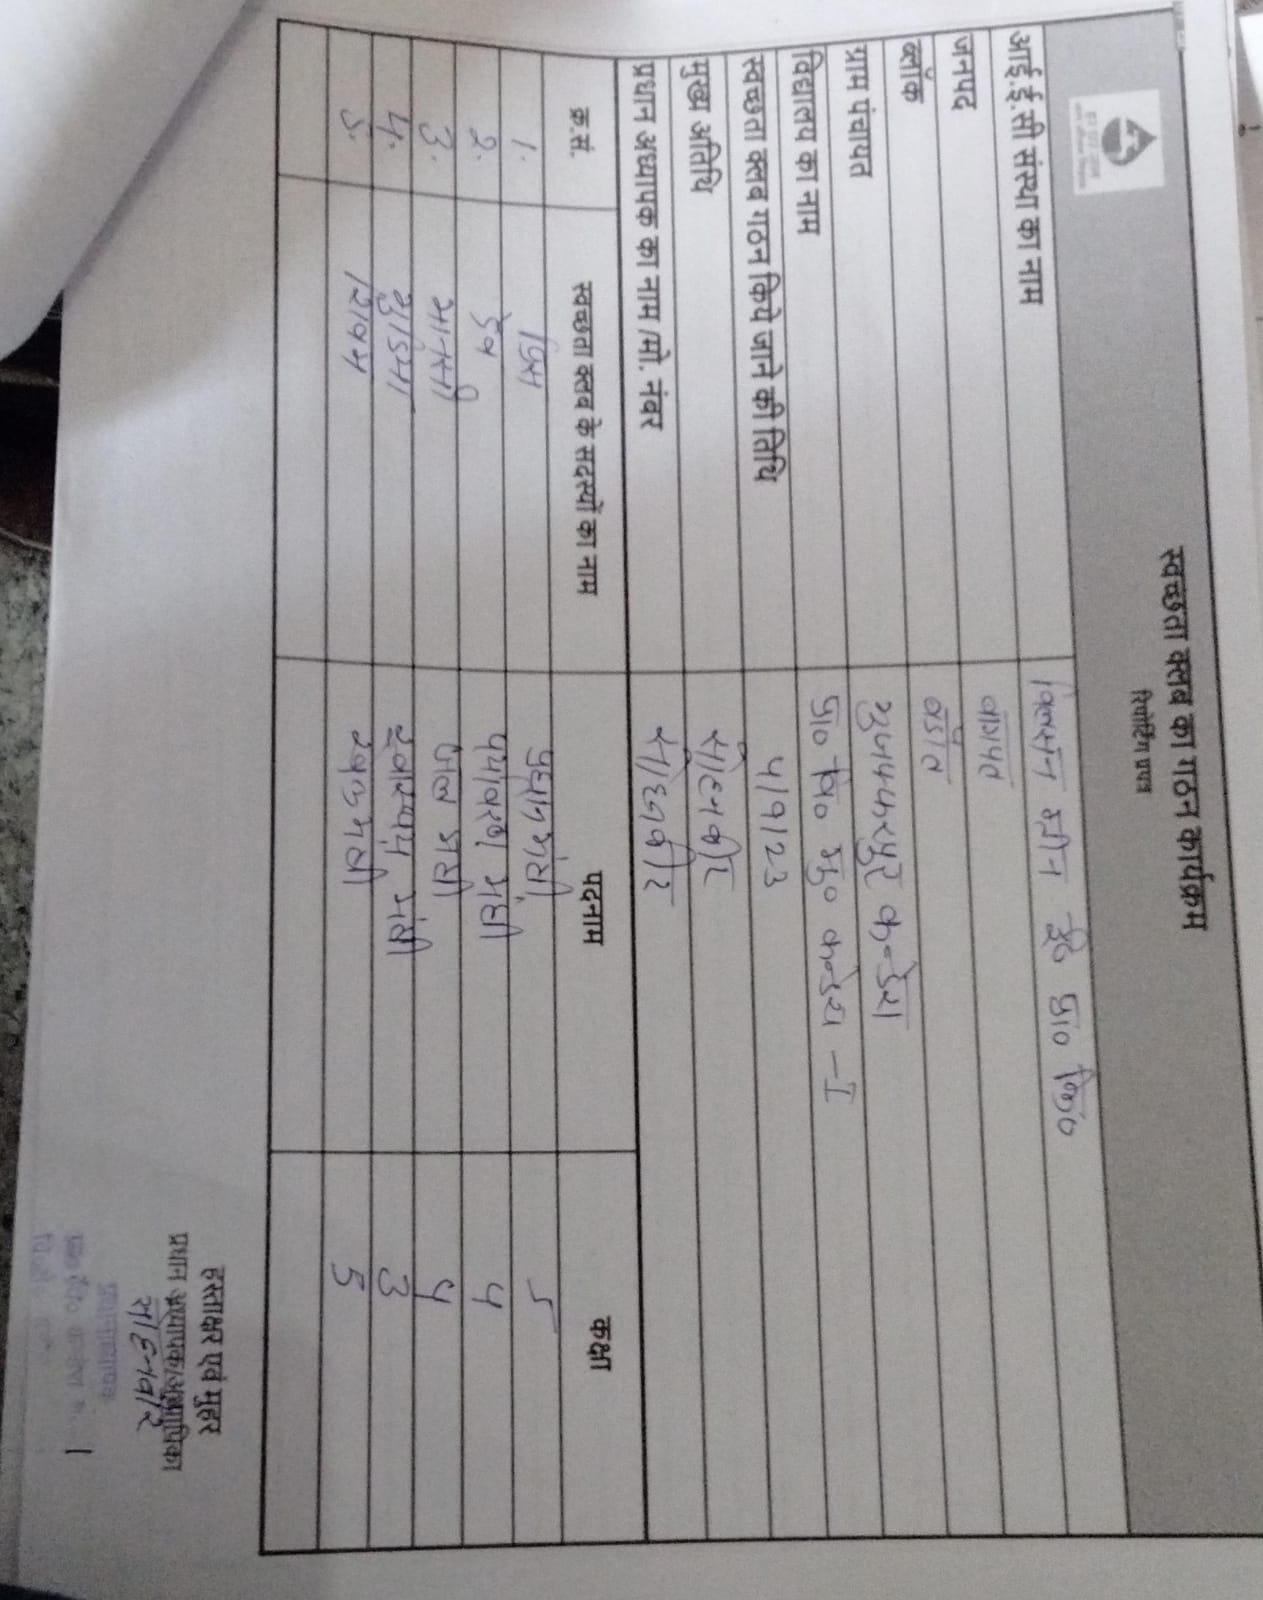 स्वच्छता क्लब का गठन कार्यक्रम
रिपोर्टिंग प्रपत्र
आई.ई.सी संस्था का नाम
जनपद बागपत
ब्लॉक बडौत
ग्राम पंचायत मुजफ्फरपुर कन्डेरा
विद्यालय का नाम प्रा० वि० मु० कन्डेरा -I
स्वच्छता क्लब गठन किये जाने की तिथि 4/9/23
मुख्य अतिथि सोहनवीर
प्रधान अध्यापक का नाम /मो. नंबर सोहनवीर
क्र.सं. स्वच्छता क्लब के सदस्यों का नाम पदनाम कक्षा
1. प्रधानमंत्री 5
2. पर्यावरण मंत्री 4
3. मानसी जल मंत्री 4
4. स्वास्थ्य मंत्री 3
5. शिवम 5
हस्ताक्षर एवं मुहर
प्रधान अध्यापक/अध्यापिका
सोहनवीर